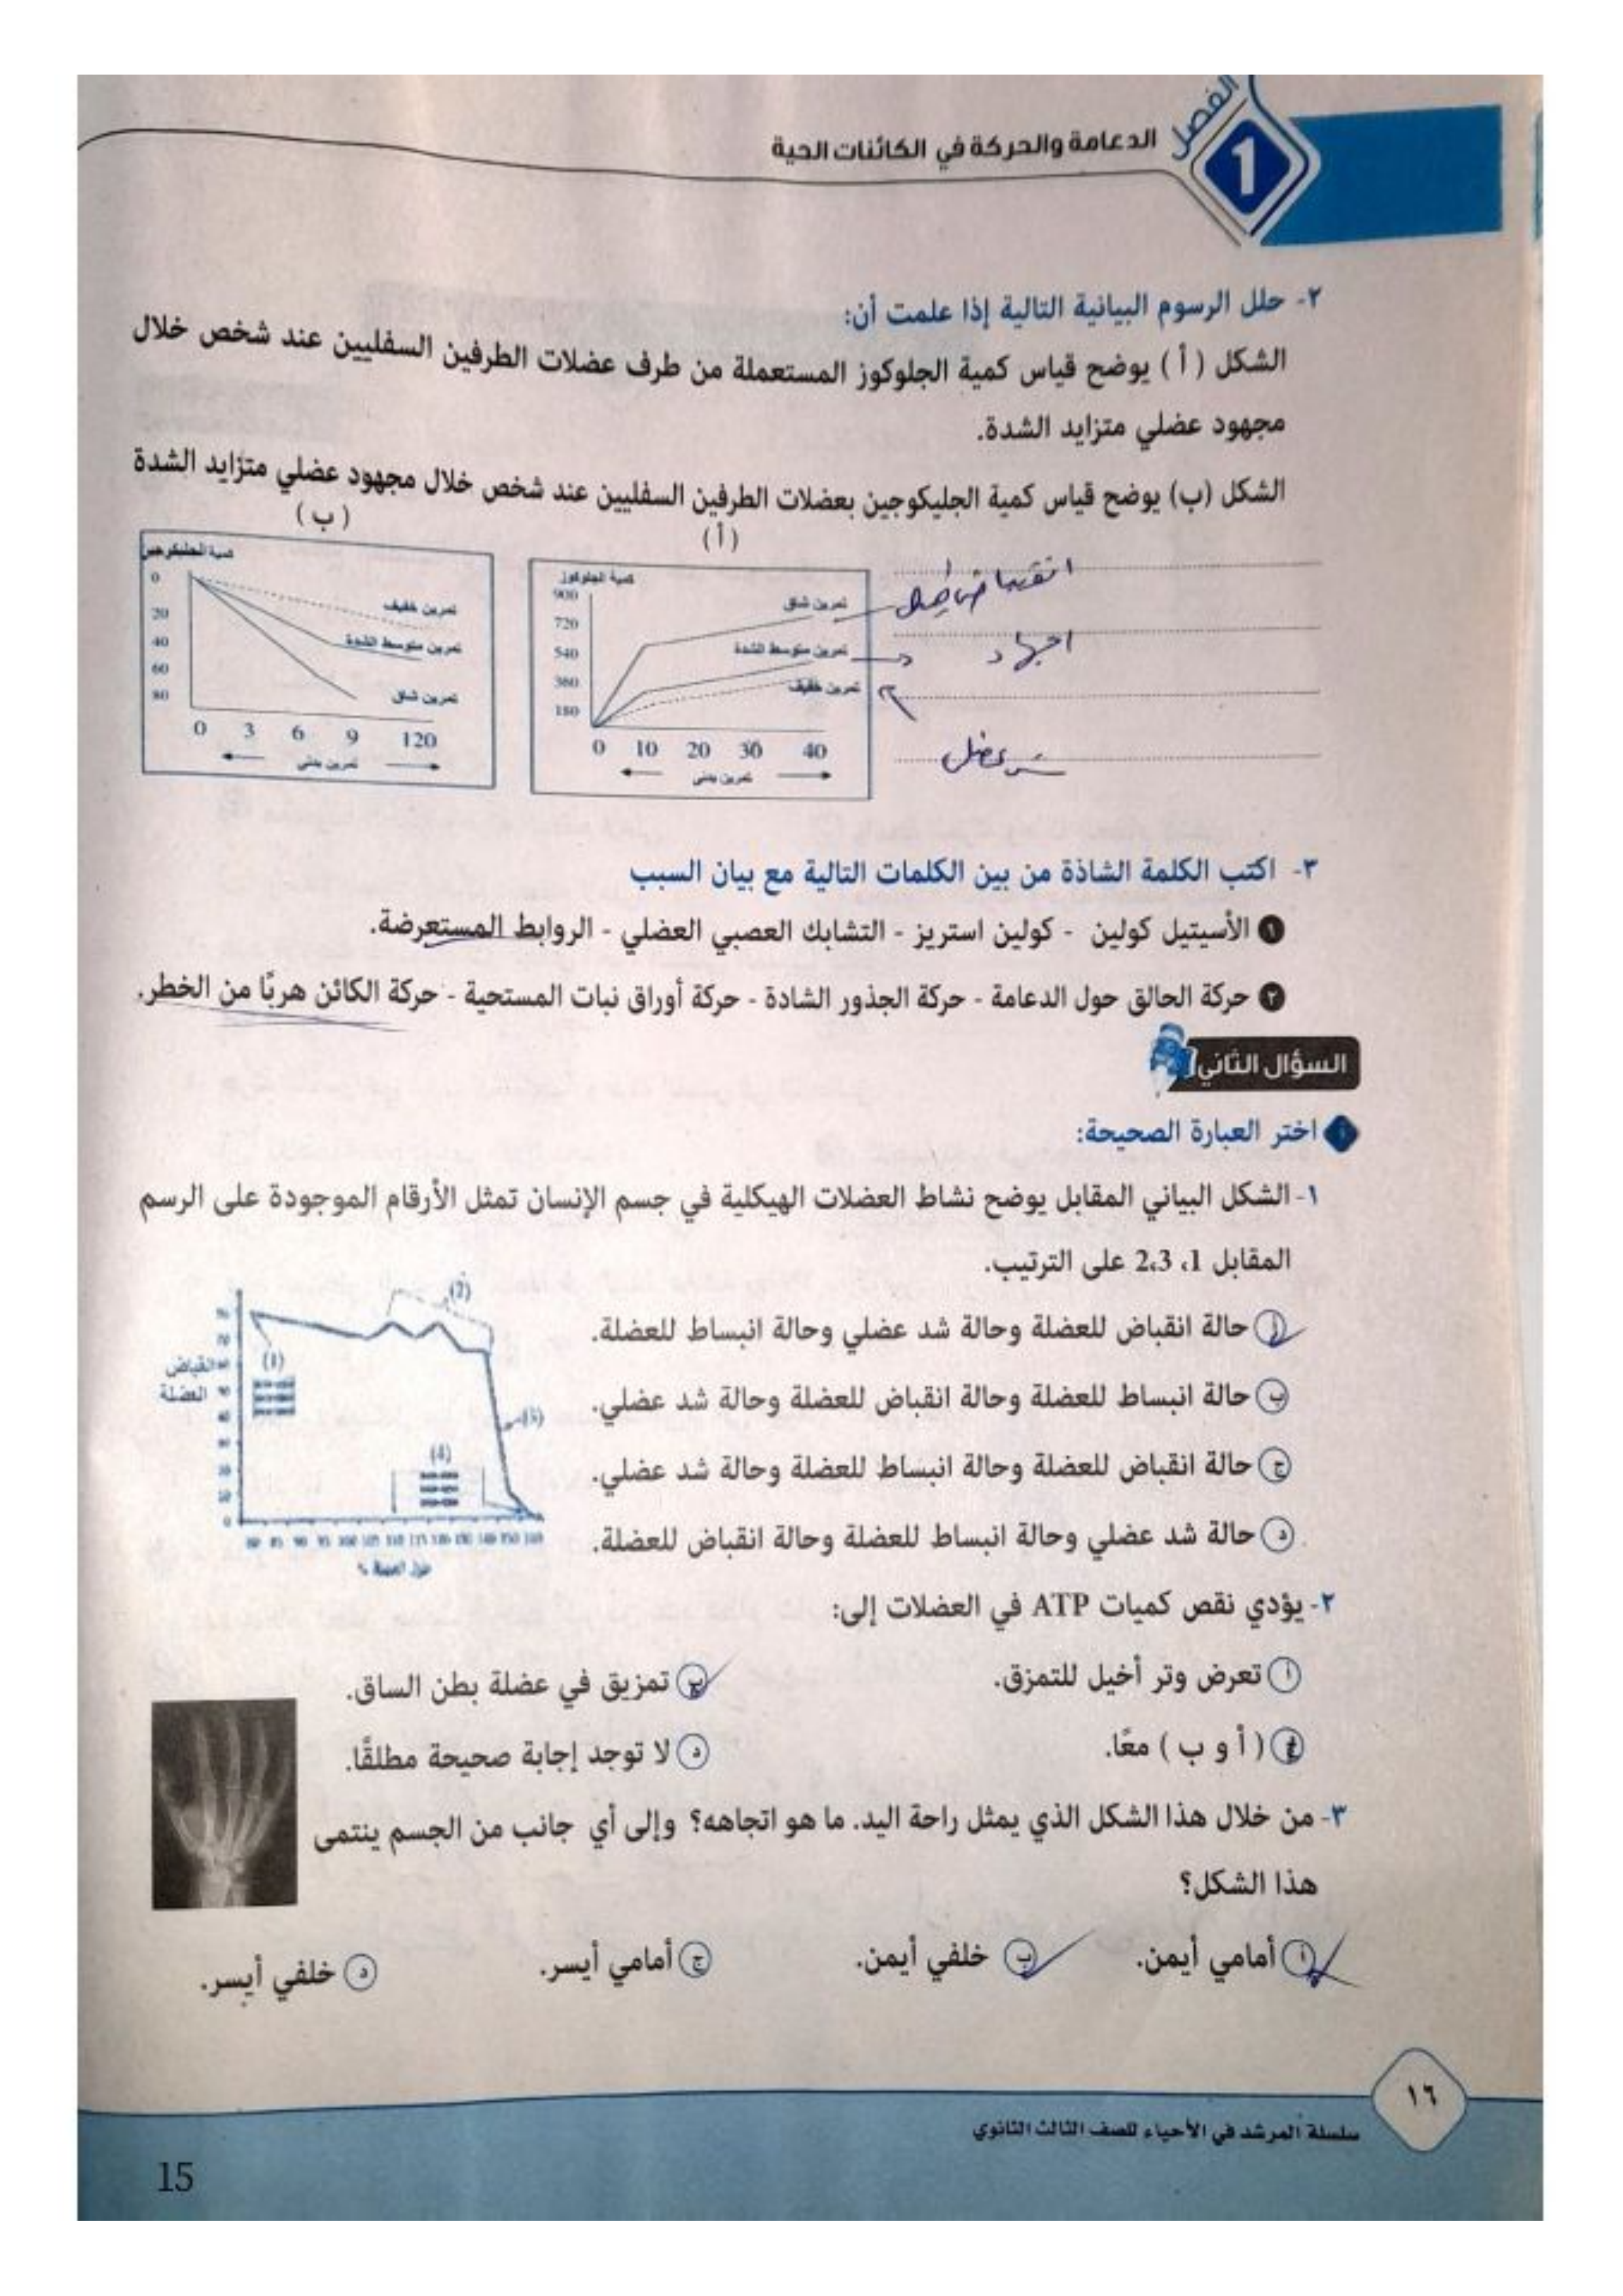 الفصل
1
الدعامة والحركة في الكائنات الحية
٢- حلل الرسوم البيانية التالية إذا علمت أن:
الشكل ( أ ) يوضح قياس كمية الجلوكوز المستعملة من طرف عضلات الطرفين السفليين عند شخص خلال
مجهود عضلي متزايد الشدة.
الشكل (ب) يوضح قياس كمية الجليكوجين بعضلات الطرفين السفليين عند شخص خلال مجهود عضلي متزايد الشدة
( أ )
كمية الجلوكوز
900
720
540
360
180
تمرين شاق
تمرين متوسط الشدة
تمرين خفيف
0 10 20 30 40
تمرين بدنى
( ب )
كمية الجليكوجين
0
20
40
60
80
تمرين خفيف
تمرين متوسط الشدة
تمرين شاق
0 3 6 9 120
تمرين بدنى
اجهاد
شد عضلى
٣- اكتب الكلمة الشاذة من بين الكلمات التالية مع بيان السبب
١ الأسيتيل كولين - كولين استريز - التشابك العصبي العضلي - الروابط المستعرضة.
٢ حركة الحالق حول الدعامة - حركة الجذور الشادة - حركة أوراق نبات المستحية - حركة الكائن هربًا من الخطر.
السؤال الثاني
اختر العبارة الصحيحة:
١- الشكل البياني المقابل يوضح نشاط العضلات الهيكلية في جسم الإنسان تمثل الأرقام الموجودة على الرسم
المقابل 1، 2،3 على الترتيب.
أ حالة انقباض للعضلة وحالة شد عضلي وحالة انبساط للعضلة.
ب حالة انبساط للعضلة وحالة انقباض للعضلة وحالة شد عضلي.
ج حالة انقباض للعضلة وحالة انبساط للعضلة وحالة شد عضلي.
د حالة شد عضلي وحالة انبساط للعضلة وحالة انقباض للعضلة.
انقباض
العضلة
(1)
(2)
(3)
(4)
طول العضلة %
٢- يؤدي نقص كميات ATP في العضلات إلى:
أ تعرض وتر أخيل للتمزق.
ب تمزيق في عضلة بطن الساق.
ج ( أ و ب ) معًا.
د لا توجد إجابة صحيحة مطلقًا.
٣- من خلال هذا الشكل الذي يمثل راحة اليد. ما هو اتجاهه؟ وإلى أي جانب من الجسم ينتمى
هذا الشكل؟
أ أمامي أيمن.
ب خلفي أيمن.
ج أمامي أيسر.
د خلفي أيسر.
١٦
سلسلة المرشد في الأحياء للصف الثالث الثانوي
15